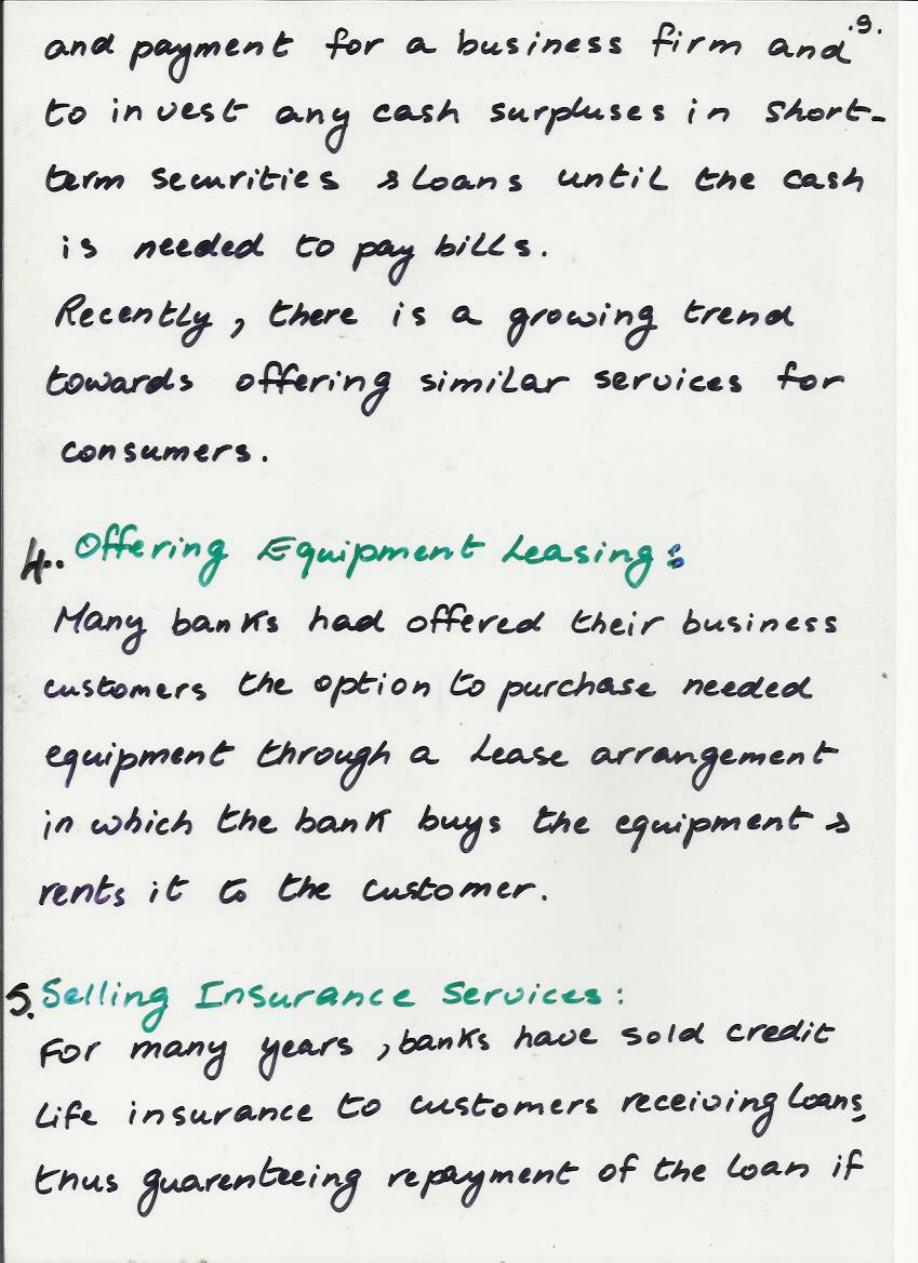 .9.
and payment for a business firm and
to invest any cash surpluses in short-
term securities & loans until the cash
is needed to pay bills.
Recently, there is a growing trend
towards offering similar services for
consumers.
4. Offering Equipment Leasing:
Many banks had offered their business
customers the option to purchase needed
equipment through a lease arrangement
in which the bank buys the equipment &
rents it to the customer.
5. Selling Insurance Services:
For many years, banks have sold credit
life insurance to customers receiving loans,
thus guarenteeing repayment of the loan if